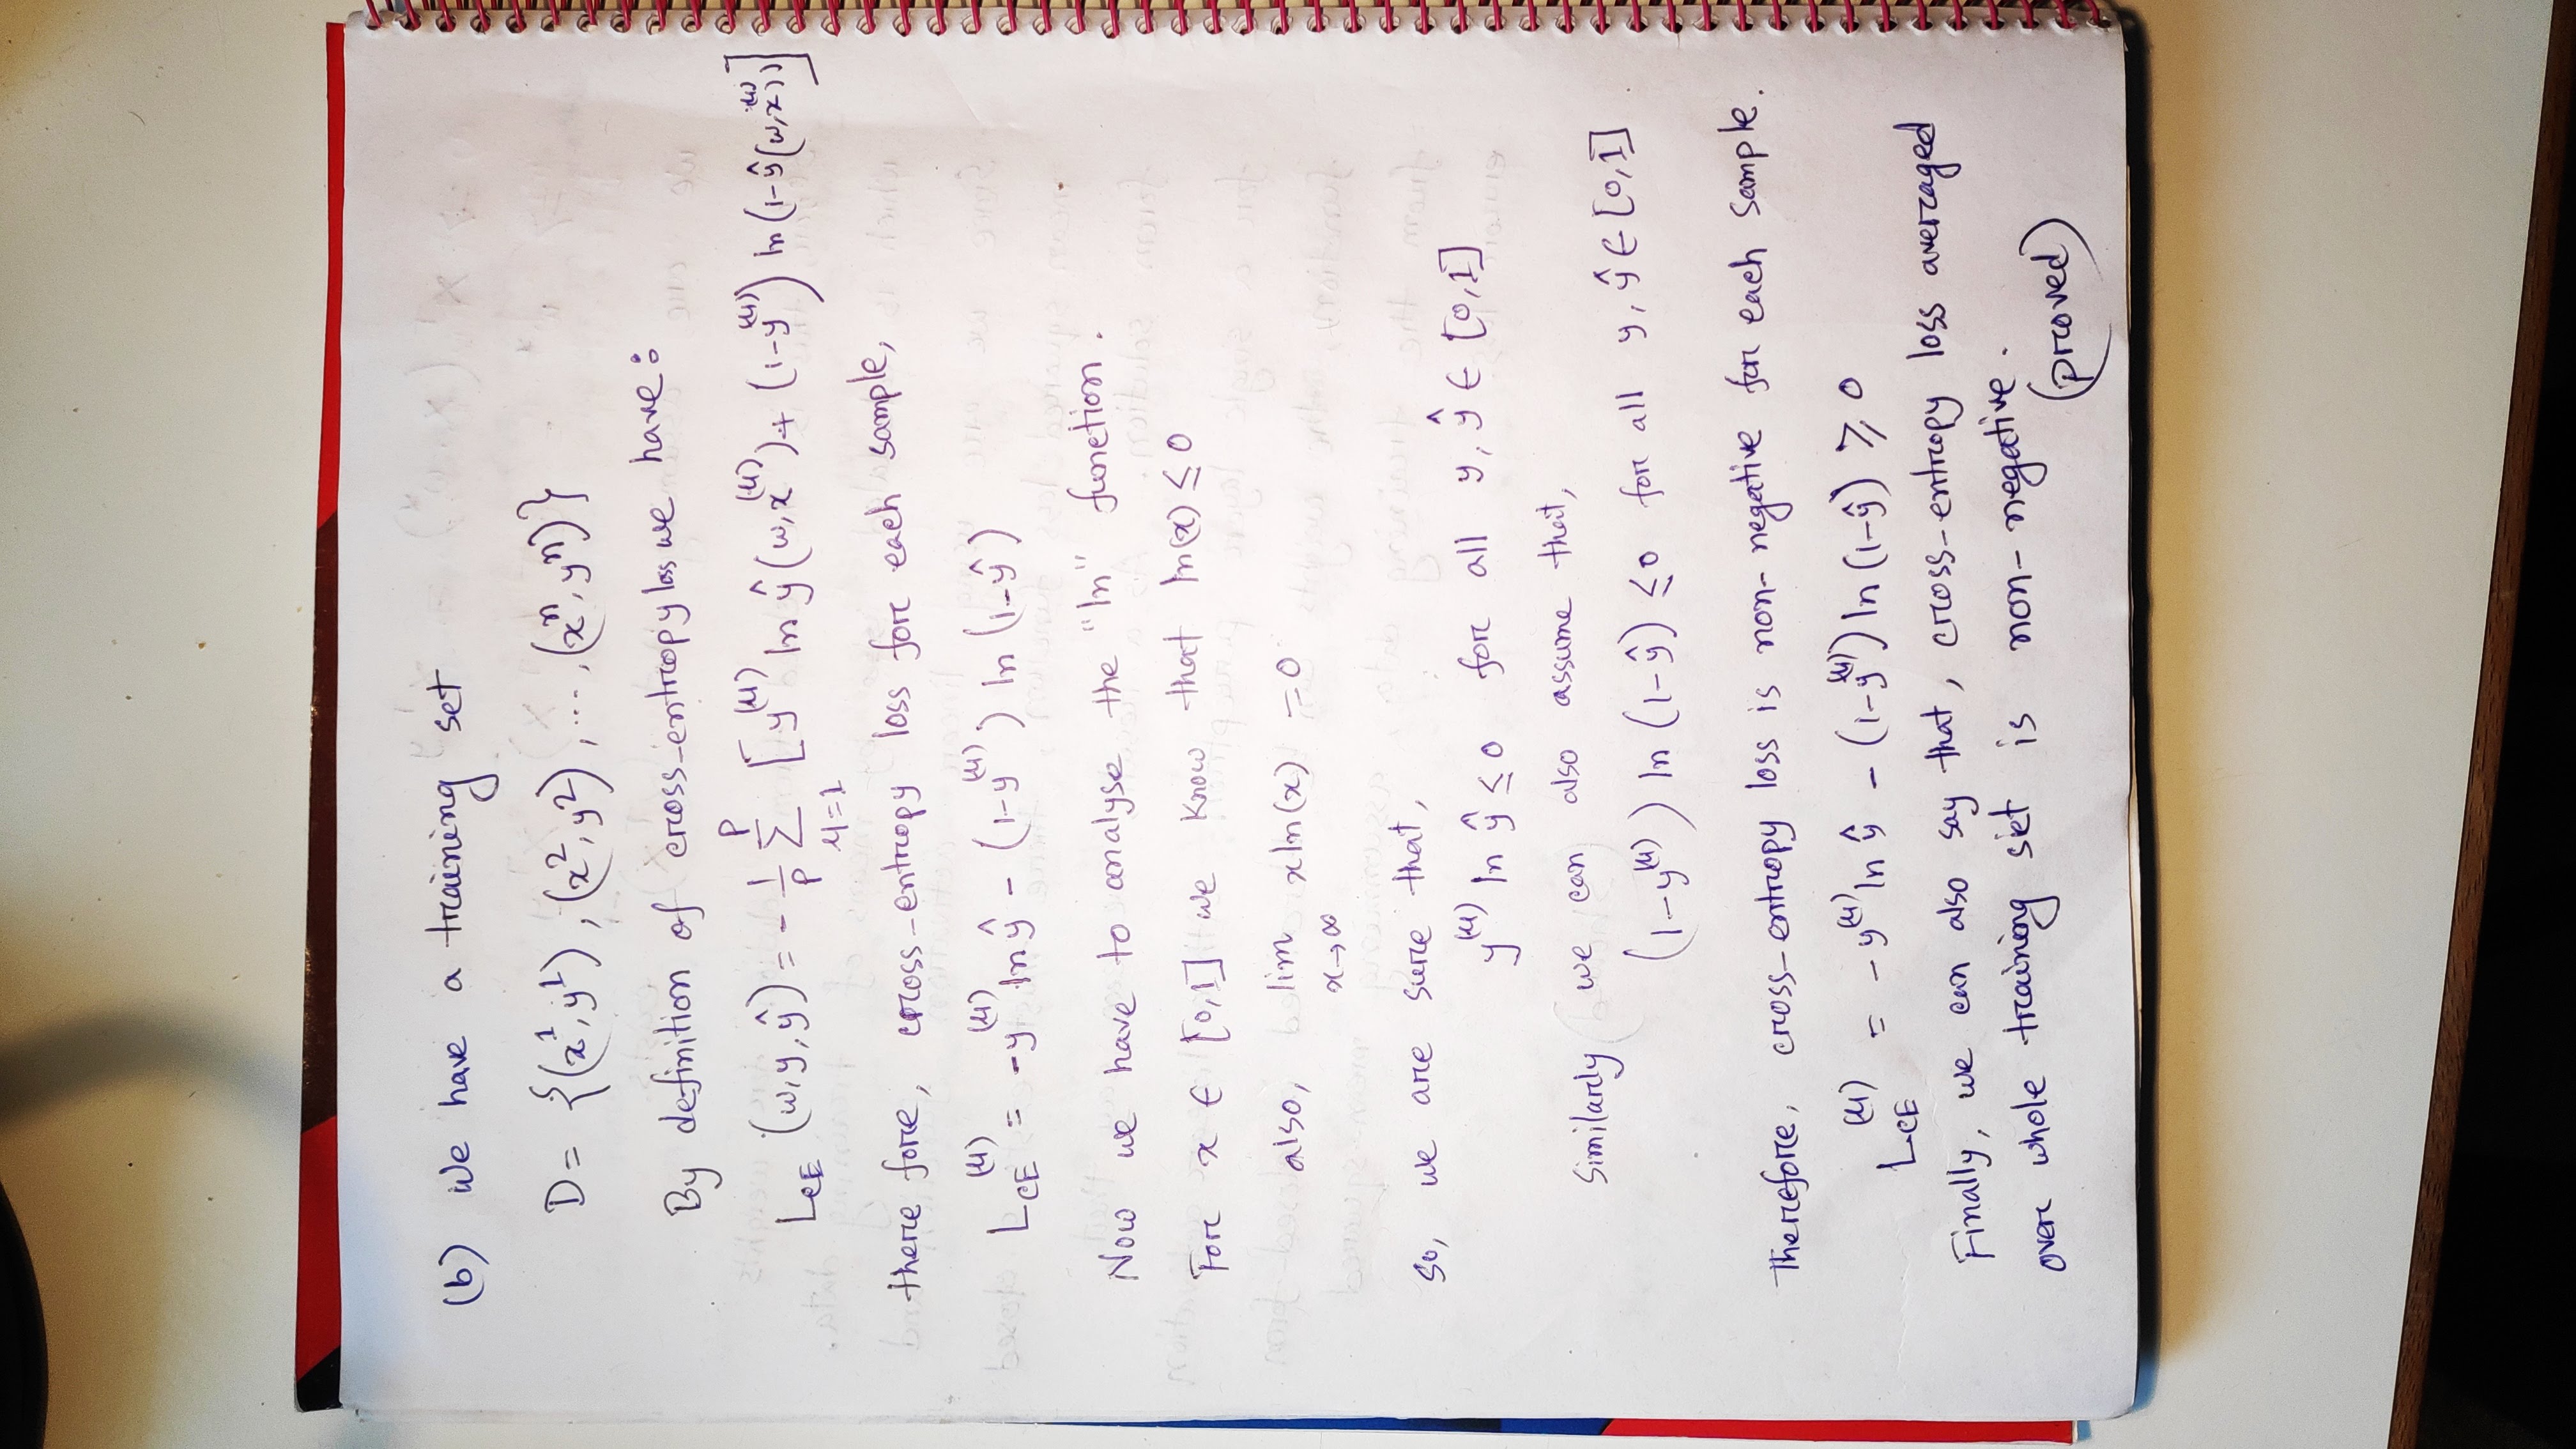 (b) we have a training set
D = {(x¹, y¹), (x², y²), ..., (xⁿ, yⁿ)}
By definition of cross-entropy loss we have:
L_CE (ω, y, ŷ) = - 1/P Σ_{μ=1}^{P} [y^(μ) ln ŷ(ω, x^(μ)) + (1-y^(μ)) ln(1-ŷ(ω, x^(μ)))]
there fore, cross-entropy loss for each sample,
L_CE^(μ) = -y^(μ) ln ŷ - (1-y^(μ)) ln (1-ŷ)
Now we have to analyse the "ln" function.
For x ∈ [0,1] we know that ln(x) ≤ 0
also, lim_{x→∞} x ln(x) = 0
So, we are sure that,
y^(μ) ln ŷ ≤ 0 for all y, ŷ ∈ [0,1]
Similarly we can also assume that,
(1-y^(μ)) ln (1-ŷ) ≤ 0 for all y, ŷ ∈ [0,1]
Therefore, cross-entropy loss is non-negative for each sample.
L_CE^(μ) = -y^(μ) ln ŷ - (1-y^(μ)) ln (1-ŷ) ≥ 0
Finally, we can also say that, cross-entropy loss averaged
over whole training set is non-negative.
(proved)